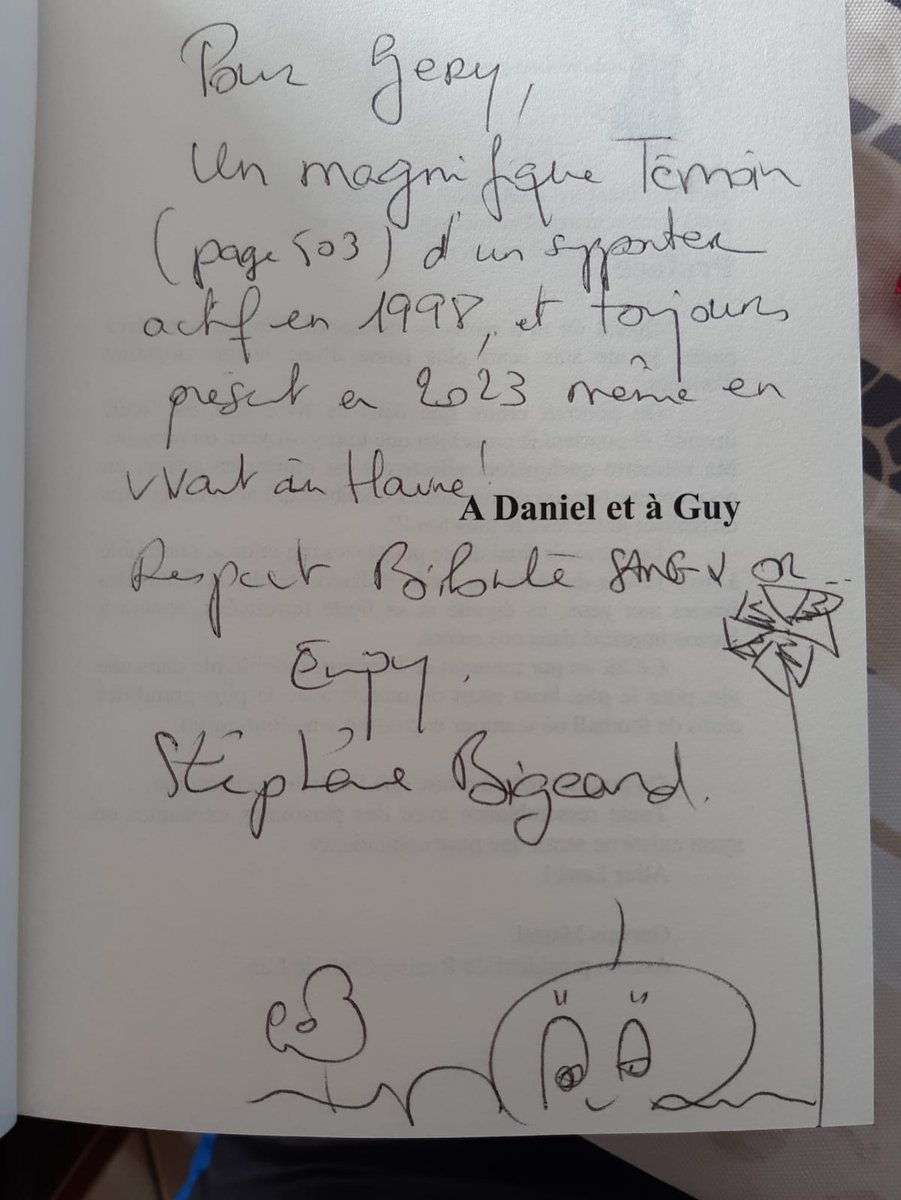 Pour Gery,
Un magnifique Témoin
(page 503) d'un supporter
actif en 1998, et toujours
présent en 2023 même en
vivant au Havre!
A Daniel et à Guy
Respect SANG & OR...
Enjoy.
Stéphane Bigeard.